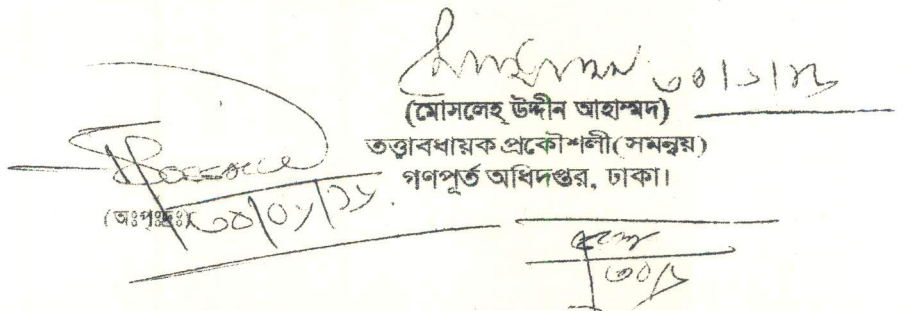 ৩০|১|১৮
(মোসলেহ্ উদ্দীন আহাম্মদ)
তত্ত্বাবধায়ক প্রকৌশলী(সমন্বয়)
গণপূর্ত অধিদপ্তর, ঢাকা।
৩০|০১|১৮
৩০|১